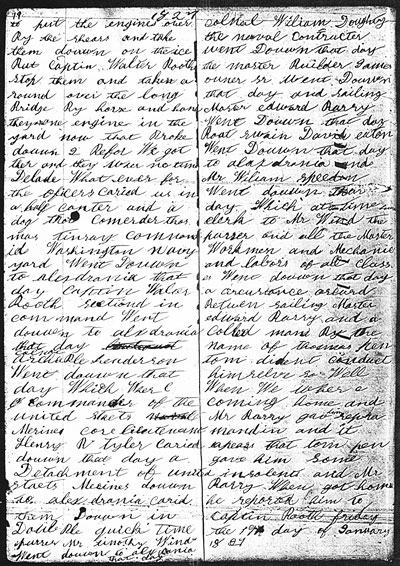 1827
to put the engine over
By the shears and take
them douwn on the ice
But Captin Walter Booth
stop them and taken a
round over the long
Bridge By horse and hans
they were engine in the
yard now that Broke
douwn 2 Befor We got
ther and they wher no time
Delade What ever for
the officers caried us in
a half canter and a
dog Comerder thos
mas tinray Command
id Washington navy
yard Went Douwn
to alexdrania that
day Captin Walas
Booth section in
command Went
douwn to alxdrania
that day
henderson
Went douwn that
day Which Wher C
Commander of the
united staets
Merines core lieutenant
Henry B tyler Caried
douwn that day a
Detachment of unitid
staets Merines douwn
to alexdrania carid
them Douwn in
Dubil quick time
purser Mr timothy Winn
Went douwn to alxdrania
that day
Colonal William Doughty
the naval Contructer
Went Douwn that day
the master Builder James
owner sr Went Douwn
that day and sailing
Master edward Barry
Went Douwn that day
Boat swain David eaton
Went Douwn that day
to alaxdrania and
Mr William speeden
Went douwn that
day Which at time
clerk to Mr Winn the
purser and all the Master
Workmen and Mechanic
and labors of all Class
es Went douwn that day
a circurstance acturd
Betwen sailing Master
edward Barry and a
Colled mane By the
name of thomas pen
tom didnt conduct
himselve so Well
When We where a
coming home and
Mr Barry gave
and it
apears that tom pen
gave him some
insolents and Mr
Barry When got home
he reporth him to
Captin Booth friday
the 19th day of January
1827